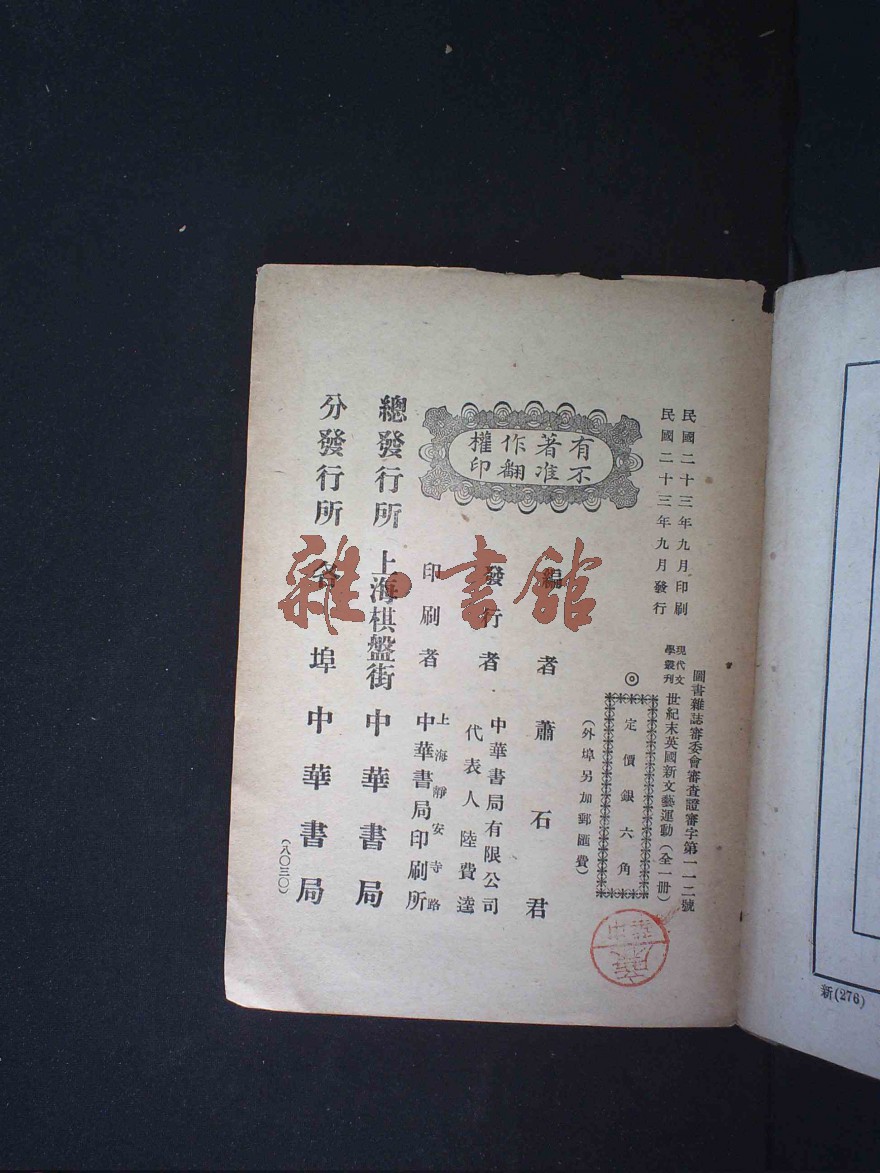 民國二十三年九月印刷
民國二十三年九月發行
圖書雜誌審委會審查證審字第一一二號
現代文學叢刊 世紀末英國新文藝運動（全一册）
◎ 定價銀六角
（外埠另加郵匯費）
有著作權
不准翻印
編者 蕭石君
發行者 中華書局有限公司
代表人陸費逵
印刷者 上海靜安寺路
中華書局印刷所
總發行所 上海棋盤街 中華書局
分發行所 各埠 中華書局
（八〇三〇）
新(276)
雜·書館